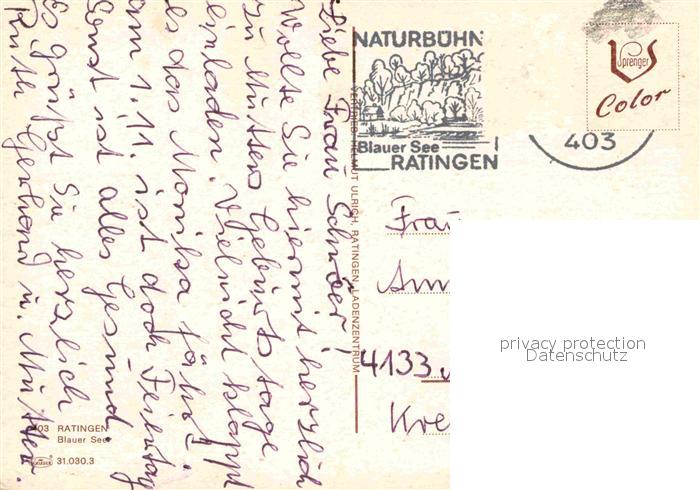 Liebe Frau Schröer!
Wollte Sie hiermit herzlich
zu Mutters Geburtstage
einladen. Vielleicht klappt
es das Monika fährt.
am 1.11. ist doch Feiertag
Sonst ist alles Gesund.
Es grüßt Sie herzlich
Ruth Gerhard u. Mutter.
NATURBÜHN
Blauer See
RATINGEN
403
Sprenger
Color
VERTRIEB: HELMUT ULRICH, RATINGEN, LADENZENTRUM
Frau
4133
Kre
privacy protection
Datenschutz
403 RATINGEN
Blauer See
31.030.3